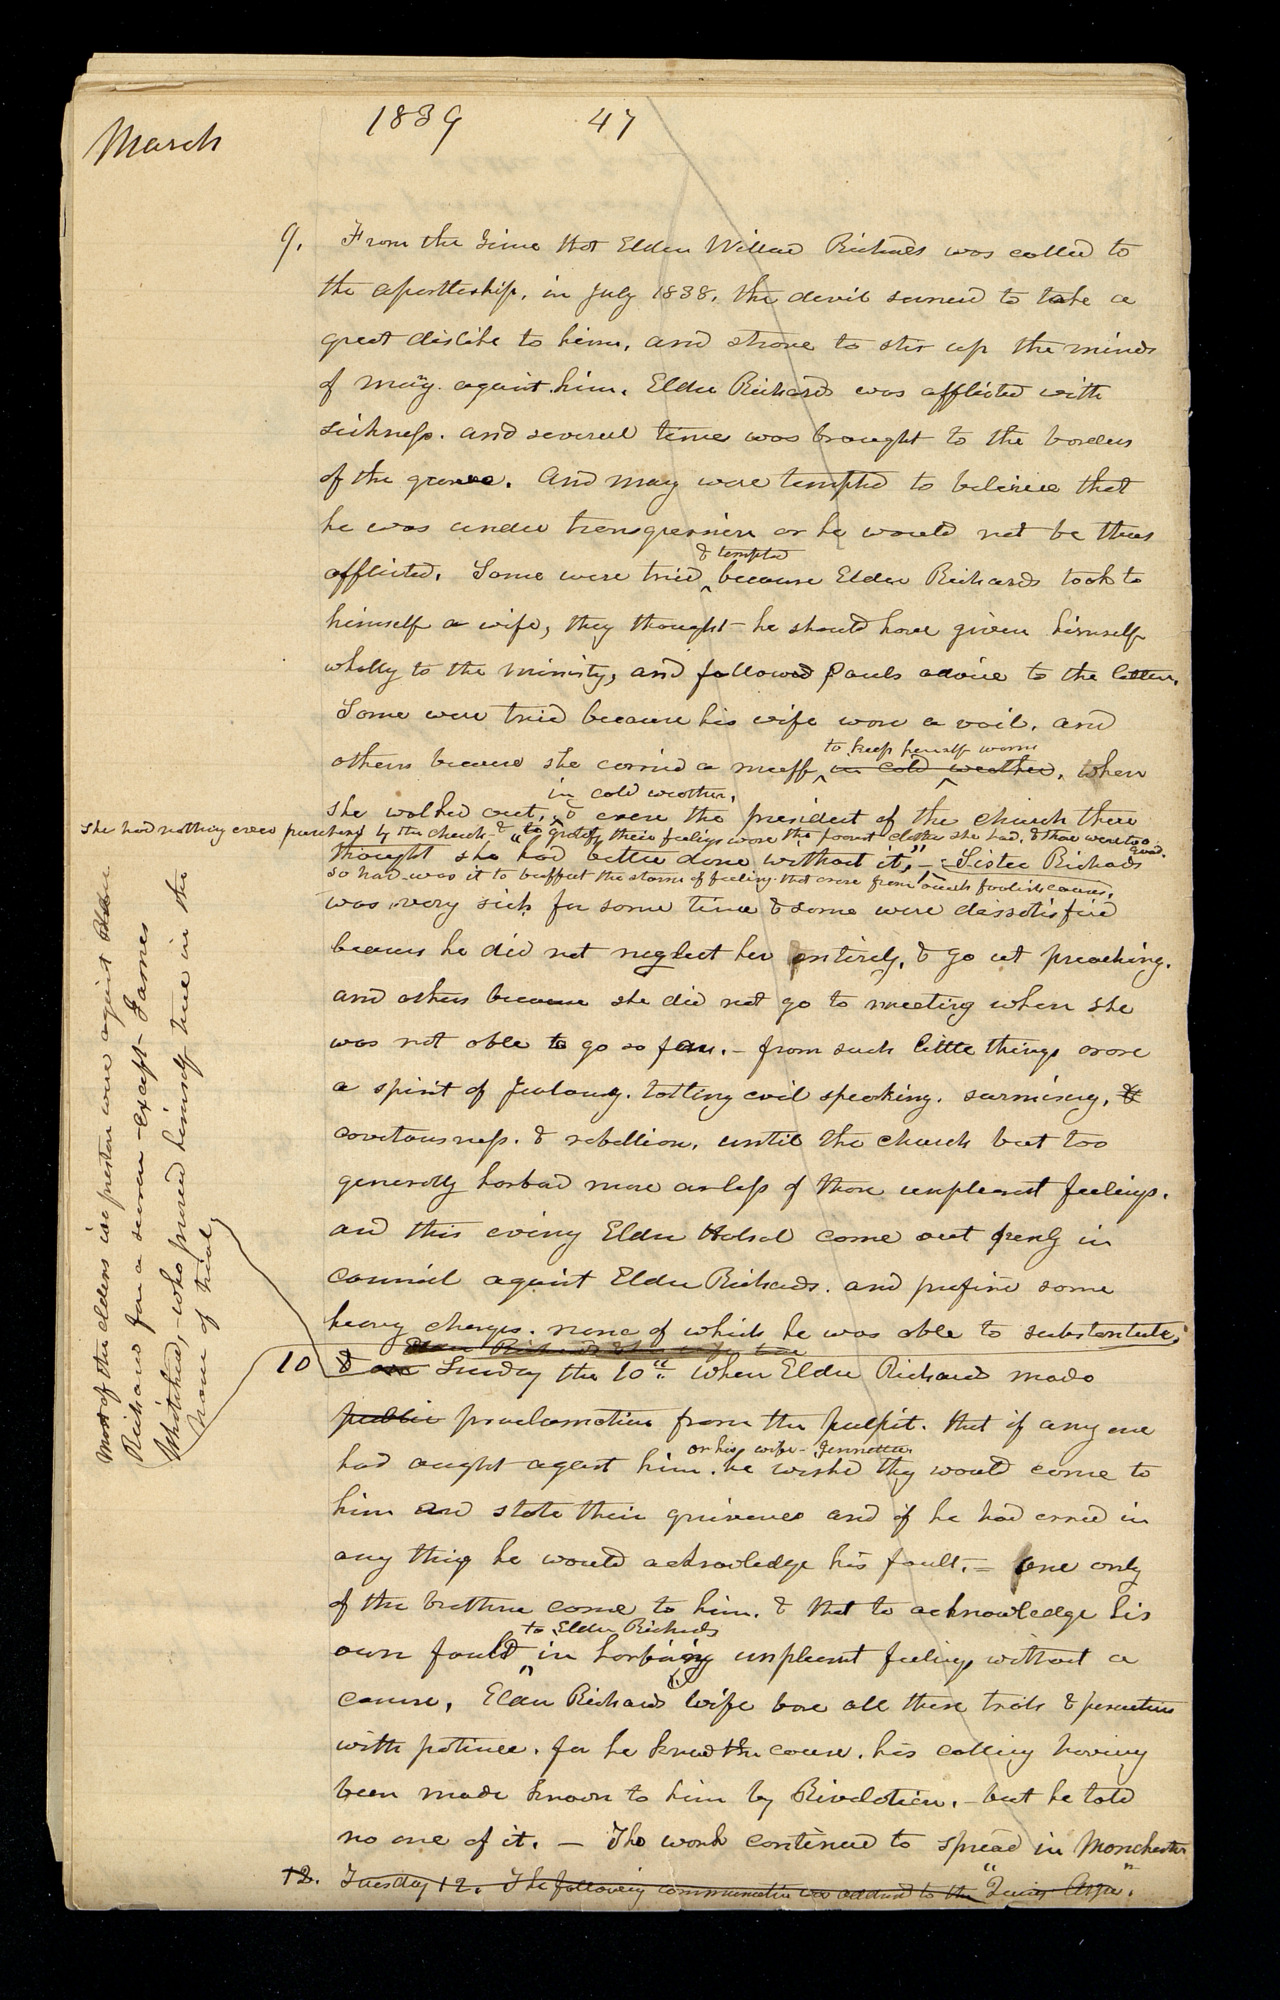 March
1839 47
9. From the time that Elder Willard Richards was called to
the apostleship, in July 1838, the devil seemed to take a
great dislike to him, and strove to stir up the minds
of many against him. Elder Richards was afflicted with
sickness. and several time was brought to the borders
of the grave. And many were tempted to believe that
he was under transgression or he would not be thus
& tempted
afflicted. Some were tried ^ because Elder Richards took to
himself a wife, they thought he should have given himself
wholly to the ministry, and followed Pauls advice to the letter.
Some were tried because his wife wore a vail, and
to keep herself warm
others because she carried a muff ^ in cold weather, when
in cold weather,
she walked out, & even the president of the church there
she had nothing ever purchased by the church & to gratify their feelings wore the poorest clothes she had, & those were too good.
thought she had better done without it," - Sister Richards
so hard was it to buffet the storm of feeling that arose from such foolish causes.
was very sick for some time & some were dissatisfied
because he did not neglect her entirely, & go out preaching.
and others because she did not go to meeting when she
was not able to go so far. - from such little things arose
a spirit of Jealousy, tatling evil speaking. surmising, &
covetousness. & rebellion, until the church but too
generally harbord more or less of those unpleasant feelings.
and this evening Elder Halsal came out openly in
council against Elder Richards. and prefird some
heavy charges. none of which he was able to substantiate,
Most of the elders in preston were against Elder
Richards for a season - except James
Whitehead, who proved himself true in the
hour of trial,
10 & on Sunday the 10th. when Elder Richards made
public proclamation from the pulpit. that if any one
or his wife - Jennetta
had aught against him. he wished they would come to
him and state their grievances and if he had erred in
any thing he would acknowledge his fault. - one only
of the brethren came to him. & that to acknowledge his
to Elder Richards
own fault ^ in harboring unpleasant feelings without a
cause, Elder Richards wife bore all these trials & persecutions
with patience. for he knew the cause. his calling having
been made known to him by Revelation. - but he told
no one of it. - The work continued to spread in Manchester
12. Tuesday 12. The following communication was addressed to the "Quincy Argus".